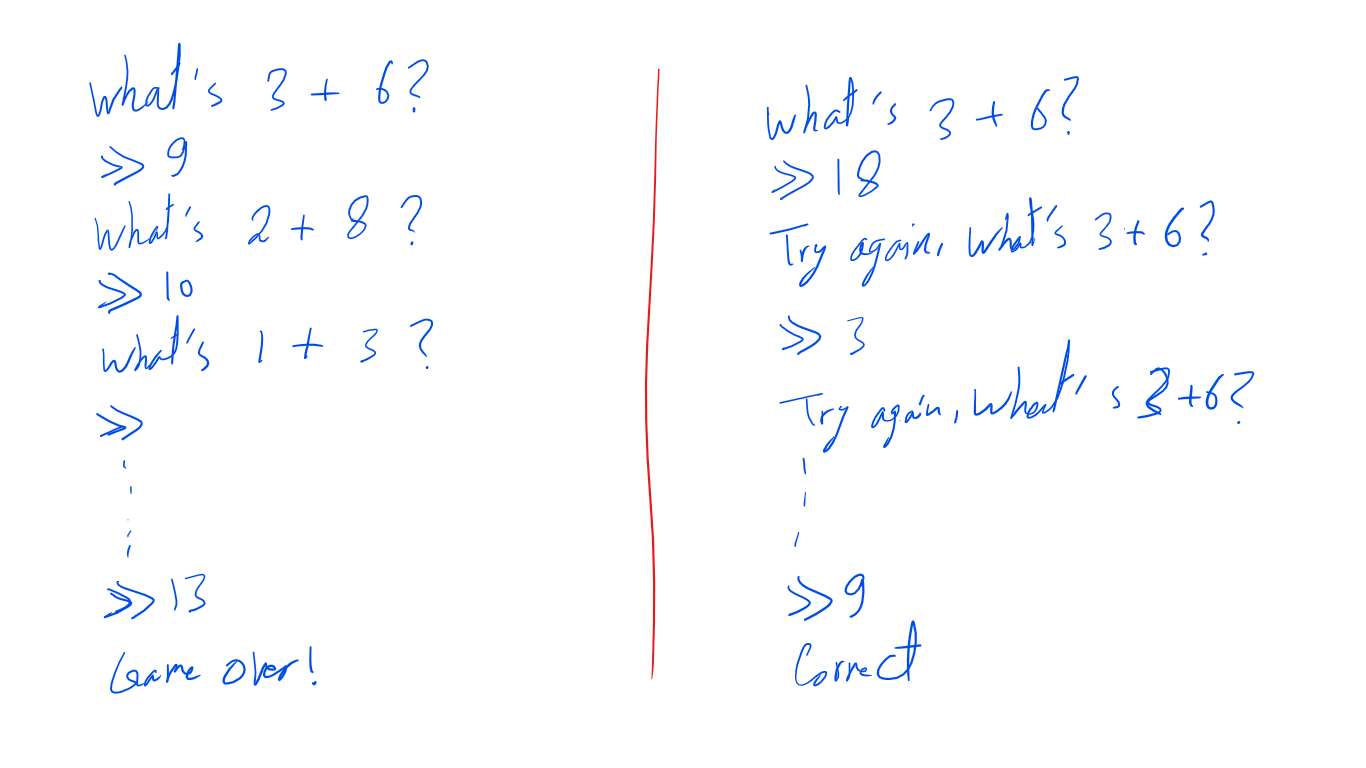 What's 3 + 6?
>> 9
What's 2 + 8 ?
>> 10
What's 1 + 3 ?
>>
>> 13
Game Over!
What's 3 + 6?
>> 18
Try again, What's 3 + 6?
>> 3
Try again, What's 3 + 6?
>> 9
Correct